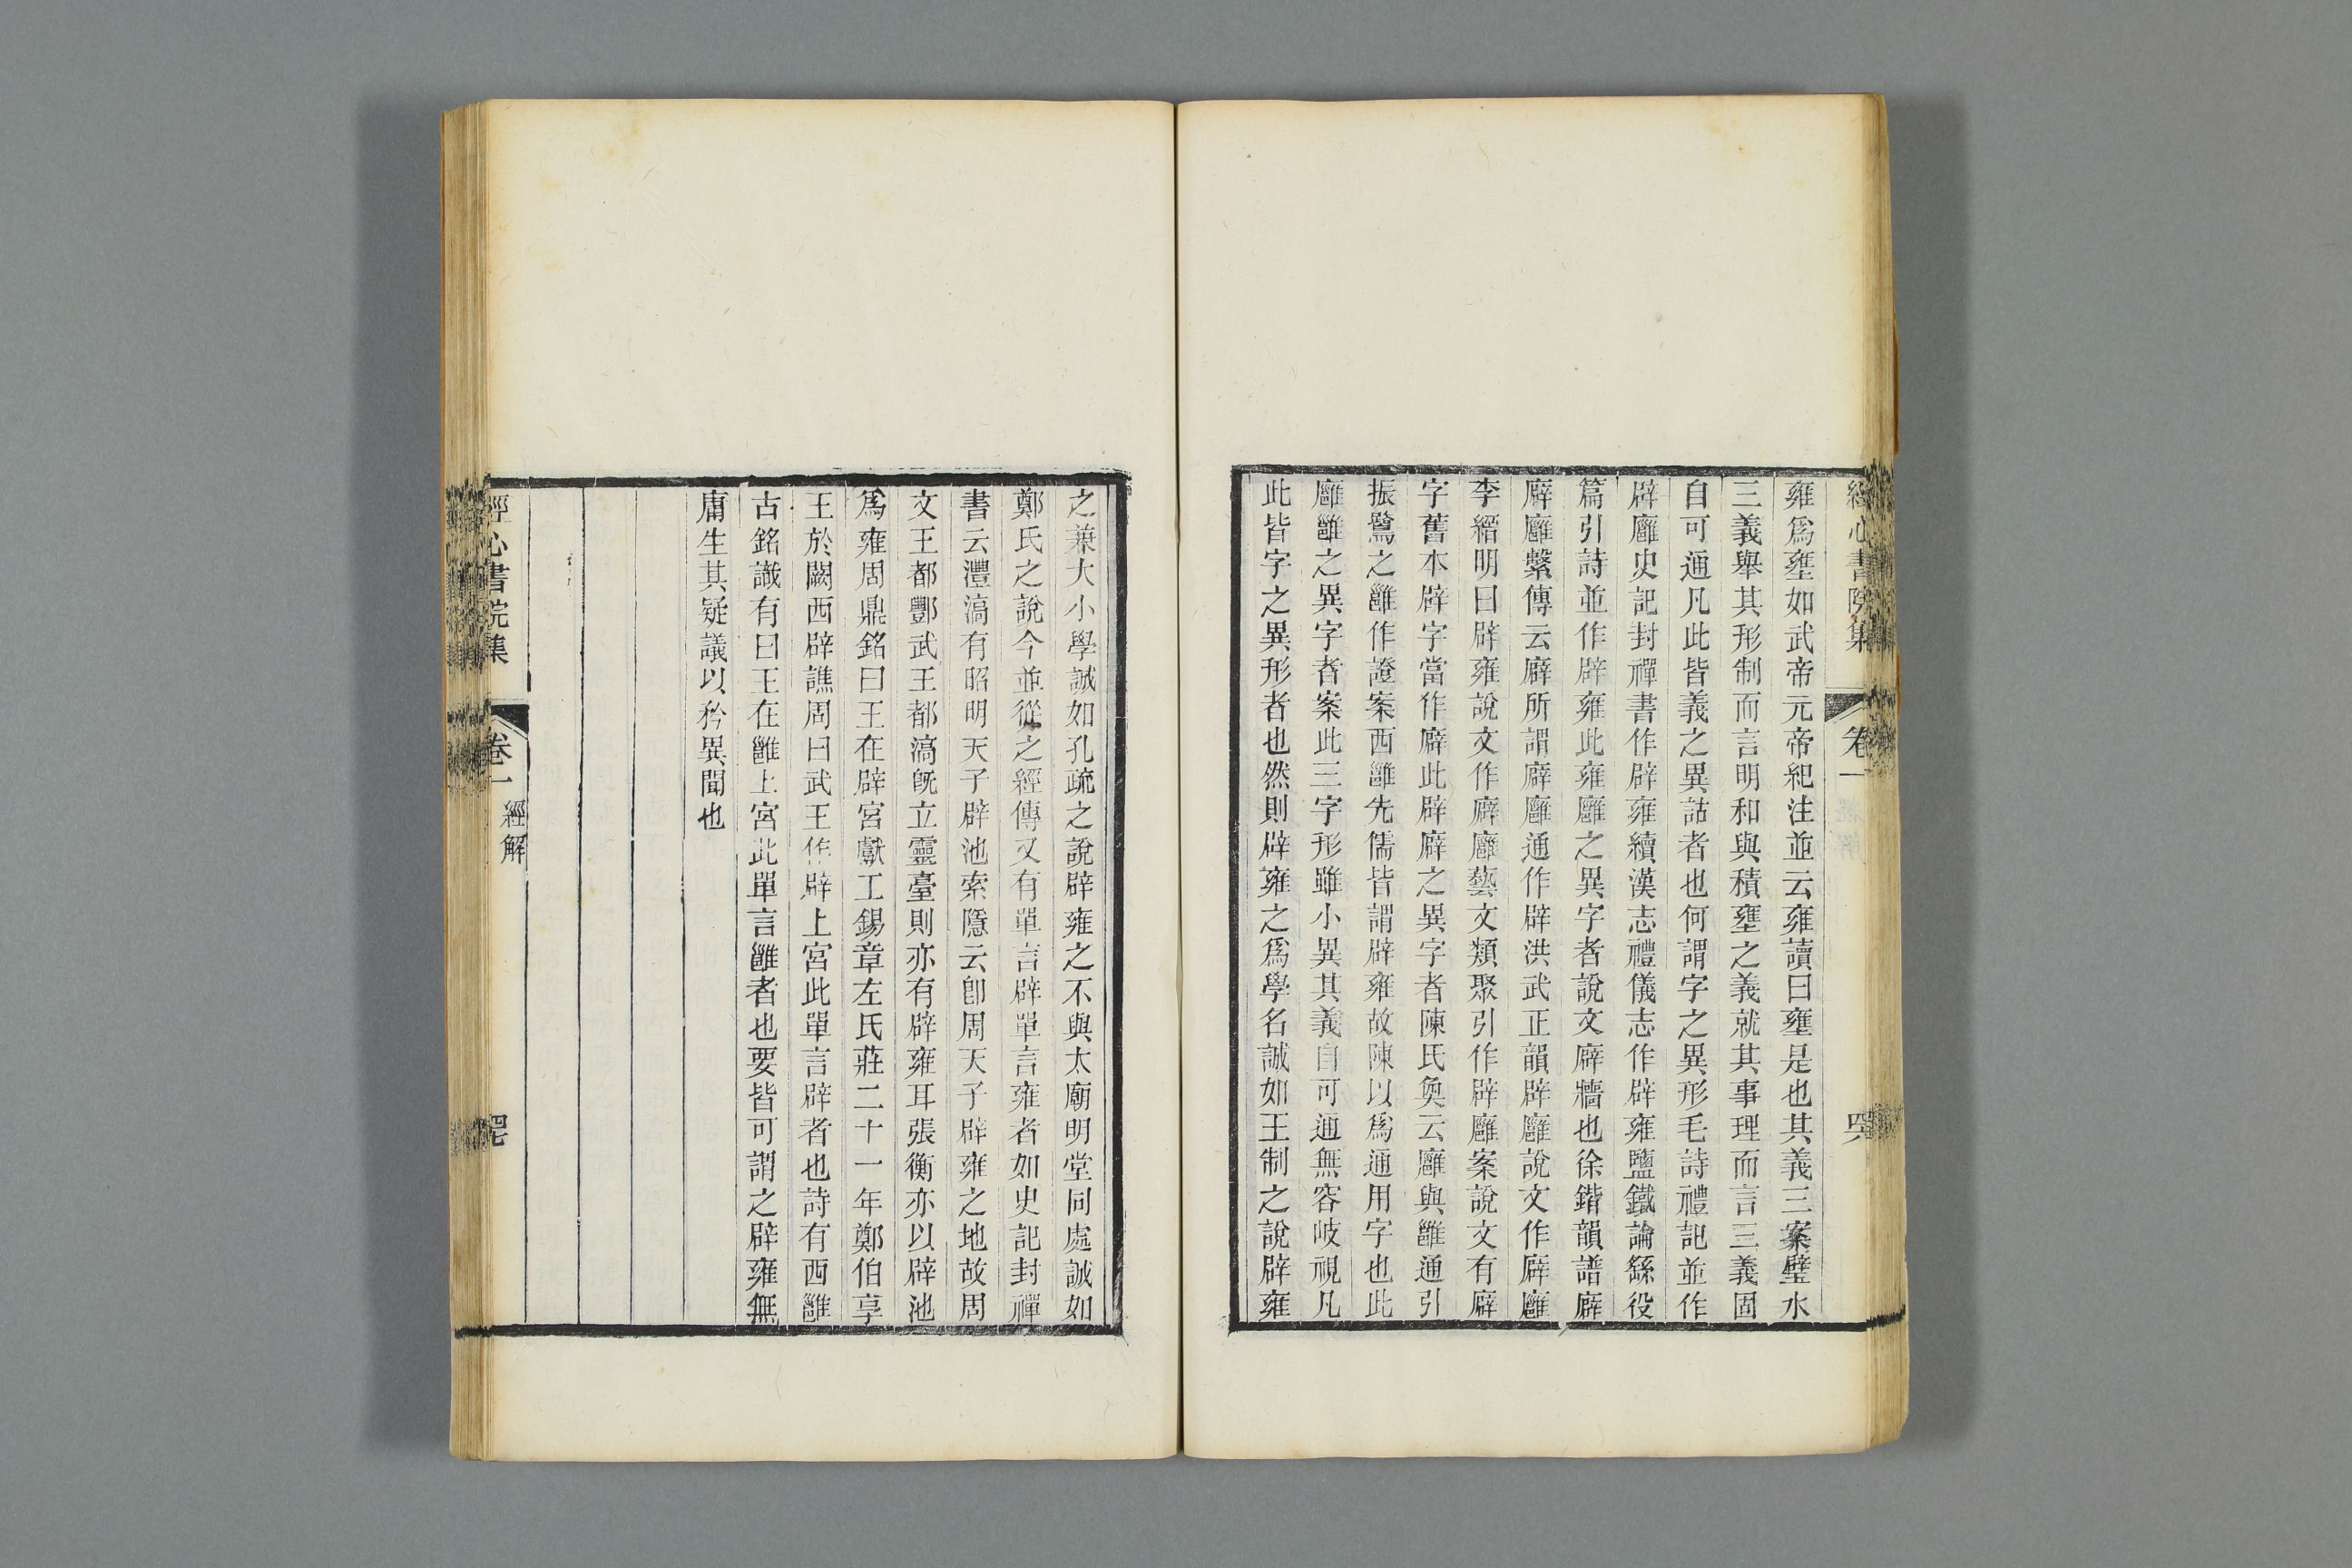 經心書院集 卷一 哭
雍爲壅如武帝元帝紀注並云雍讀曰壅是也其義三案璧水
三義舉其形制而言明和與積壅之義就其事理而言三義固
自可通凡此皆義之異詁者也何謂字之異形毛詩禮記並作
辟廱史記封禪書作辟雍續漢志禮儀志作辟雍鹽鐵論繇役
篇引詩並作辟雍此雍廱之異字者說文廦牆也徐鍇韻譜廦
廦廱繫傳云廦所謂廦廱通作辟洪武正韻辟廱說文作廦廱
李縉明曰辟雍說文作廦廱藝文類聚引作辟廱案說文有廦
字舊本辟字當作廦此辟廦之異字者陳氏奐云廱與雝通引
振鷺之雝作證案西雝先儒皆謂辟雍故陳以爲通用字也此
廱雝之異字者案此三字形雖小異其義自可通無容岐視凡
此皆字之異形者也然則辟雍之爲學名誠如王制之說辟雍
之兼大小學誠如孔疏之說辟雍之不與太廟明堂同處誠如
鄭氏之說今並從之經傳又有單言辟單言雍者如史記封禪
書云灃滈有昭明天子辟池索隱云卽周天子辟雍之地故周
文王都酆武王都滈旣立靈臺則亦有辟雍耳張衡亦以辟池
爲雍周鼎銘曰王在辟宮獻工錫章左氏莊二十一年鄭伯享
王於闕西辟譙周曰武王作辟上宮此單言辟者也詩有西雝
古銘識有曰王在雝上宮此單言雝者也要皆可謂之辟雍無
庸生其疑議以矜異聞也
經心書院集 卷一 經解